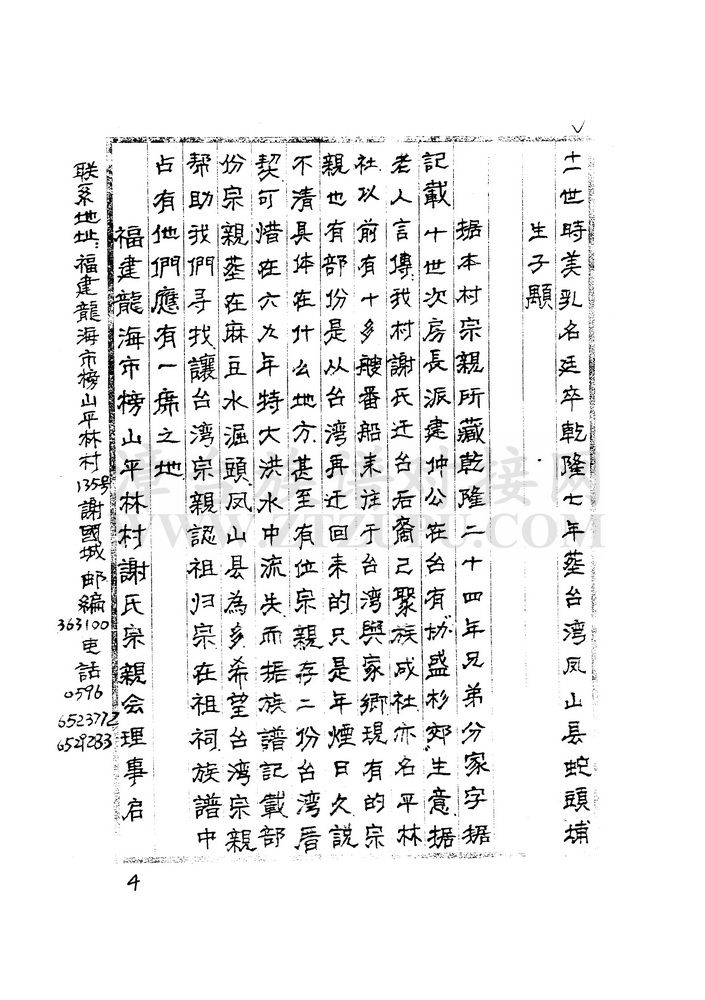 十一世時美乳名廷卒乾隆七年葬台湾凤山县蛇頭埔
生子顒
据本村宗親所藏乾隆二十四年兄弟分家字据
記載十世次房長派建仲公在台有"協盛杉郊"生意据
老人言傳我村謝氏迁台后裔已聚族成社亦名平林
社以前有十多艘番船來往于台湾與家鄉現有的宗
親也有部份是以台湾再迁回来的只是年煙日久説
不清具体在什么地方甚至有位宗親存二份台湾厝
契可惜在六九年特大洪水中流失而据族譜記載部
份宗親葬在麻豆水濕頭凤山县為多希望台湾宗親
帮助我們寻找讓台湾宗親認祖归宗在祖祠族譜中
占有他們應有一席之地
福建龍海市榜山平林村謝氏宗親会理事启
联系地址:福建龍海市榜山平林村135号謝國城 邮編363100电話0596 6523772 6529283
4
漳台族谱对接网
WWW.ZTZUPU.COM